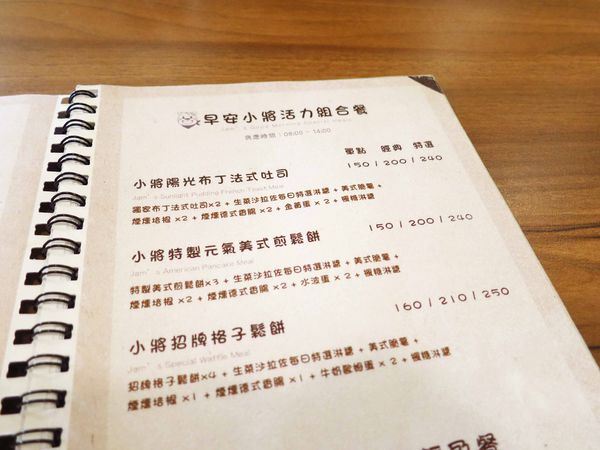 早安小將活力組合餐
Jam's Good Morning Special Meals
供應時間：08:00 ~ 14:00
單點 經典 特選
小將陽光布丁法式吐司 150/200/240
Jam's Sunlight Pudding French Toast Meal
獨家布丁法式吐司×2 + 生菜沙拉佐每日特選淋醬 + 美式脆薯 +
煙燻培根 ×2 + 煙燻德式香腸 ×2 + 金黃蛋 × 2 + 楓糖淋醬
小將特製元氣美式煎鬆餅 150/200/240
Jam's American Pancake Meal
特製美式煎鬆餅×3 + 生菜沙拉佐每日特選淋醬 + 美式脆薯 +
煙燻培根 ×2 + 煙燻德式香腸 ×2 + 水波蛋 × 2 + 楓糖淋醬
小將招牌格子鬆餅 160/210/250
Jam's Special Waffle Meal
招牌格子鬆餅×4 + 生菜沙拉佐每日特選淋醬 + 美式脆薯 +
煙燻培根 ×1 + 煙燻德式香腸 ×1 + 牛奶歐姆蛋 × 2 + 楓糖淋醬